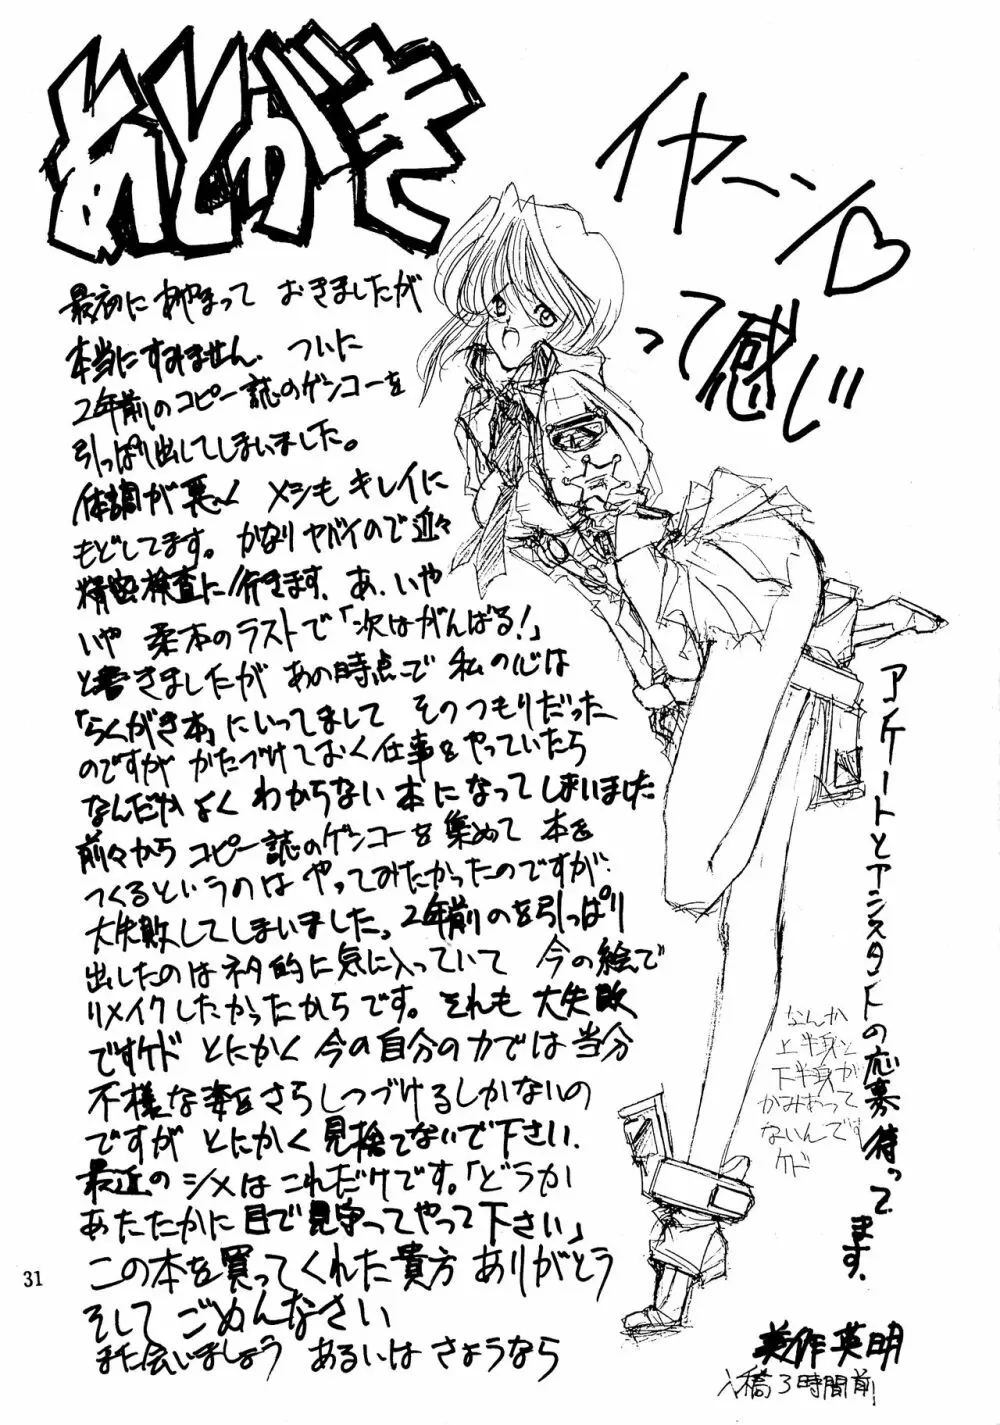 あとがき
イヤーン♡
って感じ
最初に あやまって おきましたが
本当にすみません. ついに
2年前のコピー誌のゲンコーを
引っぱり出してしまいました。
体調が悪く メシも キレイに
もどしてます。かなりヤバイので近々
精密検査に行きます. あ、いや
いや 柔本のラストで「次はがんばる!」
と書きましたが あの時点で 私の心は
「らくがき本」にいってまして そのつもりだった
のですが かたづけておく仕事をやっていたら
なんだか よく わからない 本に なってしまいました
前々から コピー誌のゲンコーを集めて 本を
つくるというのは やってみたかったのですが.
大失敗してしまいました。2年前のを引っぱり
出したのはネタ的に気に入っていて 今の絵で
リメイクしたかったからです。それも 大失敗
ですケド とにかく 今の自分の力では当分
不様な姿をさらしつづけるしかないの
ですが とにかく見捨てないで下さい.
最近のシメはこれだけです。「どうか
あたたかに目で見守ってやって下さい」
この本を買ってくれた貴方 ありがとう
そして ごめんなさい
また会いましょう あるいは さようなら
アンケートとアシスタントの応募待ってます.
なんか
上半身と
下半身が
かみあって
ないんです
ケド
美作英明
入稿3時間前!
31